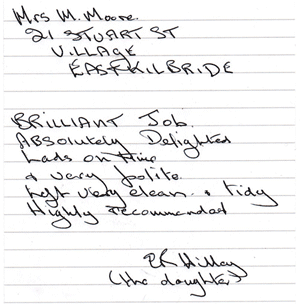 Mrs M. Moore
21 STUART ST
VILLAGE
EAST KILBRIDE
BRILLIANT Job.
ABSOLUTELY Delighted
Lads on time
& very polite.
Left very clean & tidy
Highly recommended
(the daughter)